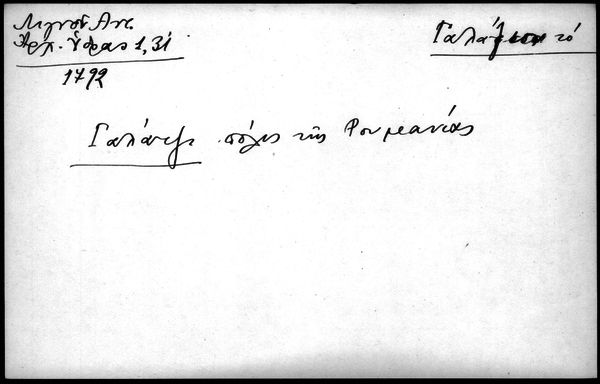 Λιγνοῦ Ἀντ.
Ἀρχ. Ὕδρας 1, 31
1792
Γαλάζιον τό
Γαλάτζι πόλις τῆς Ρουμανίας